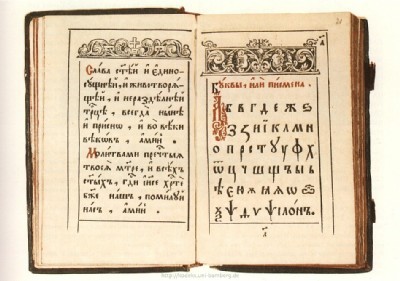 Слава ст҃ѣй и҆ є҆дино
сꙋщнѣй, и҆ животворѧ
щей, и҆ нераздѣлнѣй
трⷪ҇цѣ, всегда̀ ны́нѣ
и҆ при́сно, и҆ во вѣ́ки
вѣкѡ́въ, а҆ми́нь.
Моли́твами прⷭ҇тыѧ
твоеѧ̀ мт҃ре, и҆ всѣ́хъ
ст҃ы́хъ, гдⷭ҇и і҆и҃се хрⷭ҇тѐ
бж҃е на́шъ, поми́лꙋй
на́съ, а҆ми́нь
Бꙋ́квы, и҆лѝ писмена̀.
А б в г д е ж ѕ
З з и ї к л м н
о п р с т ꙋ у ф х
ѡ ц ч ш щ ъ ы ь
ѣ є ю ѧ ѩ ѡ
ѯ ѱ ѳ ѵ ѵпсило́нъ.
http://foenix.uni-bamberg.de